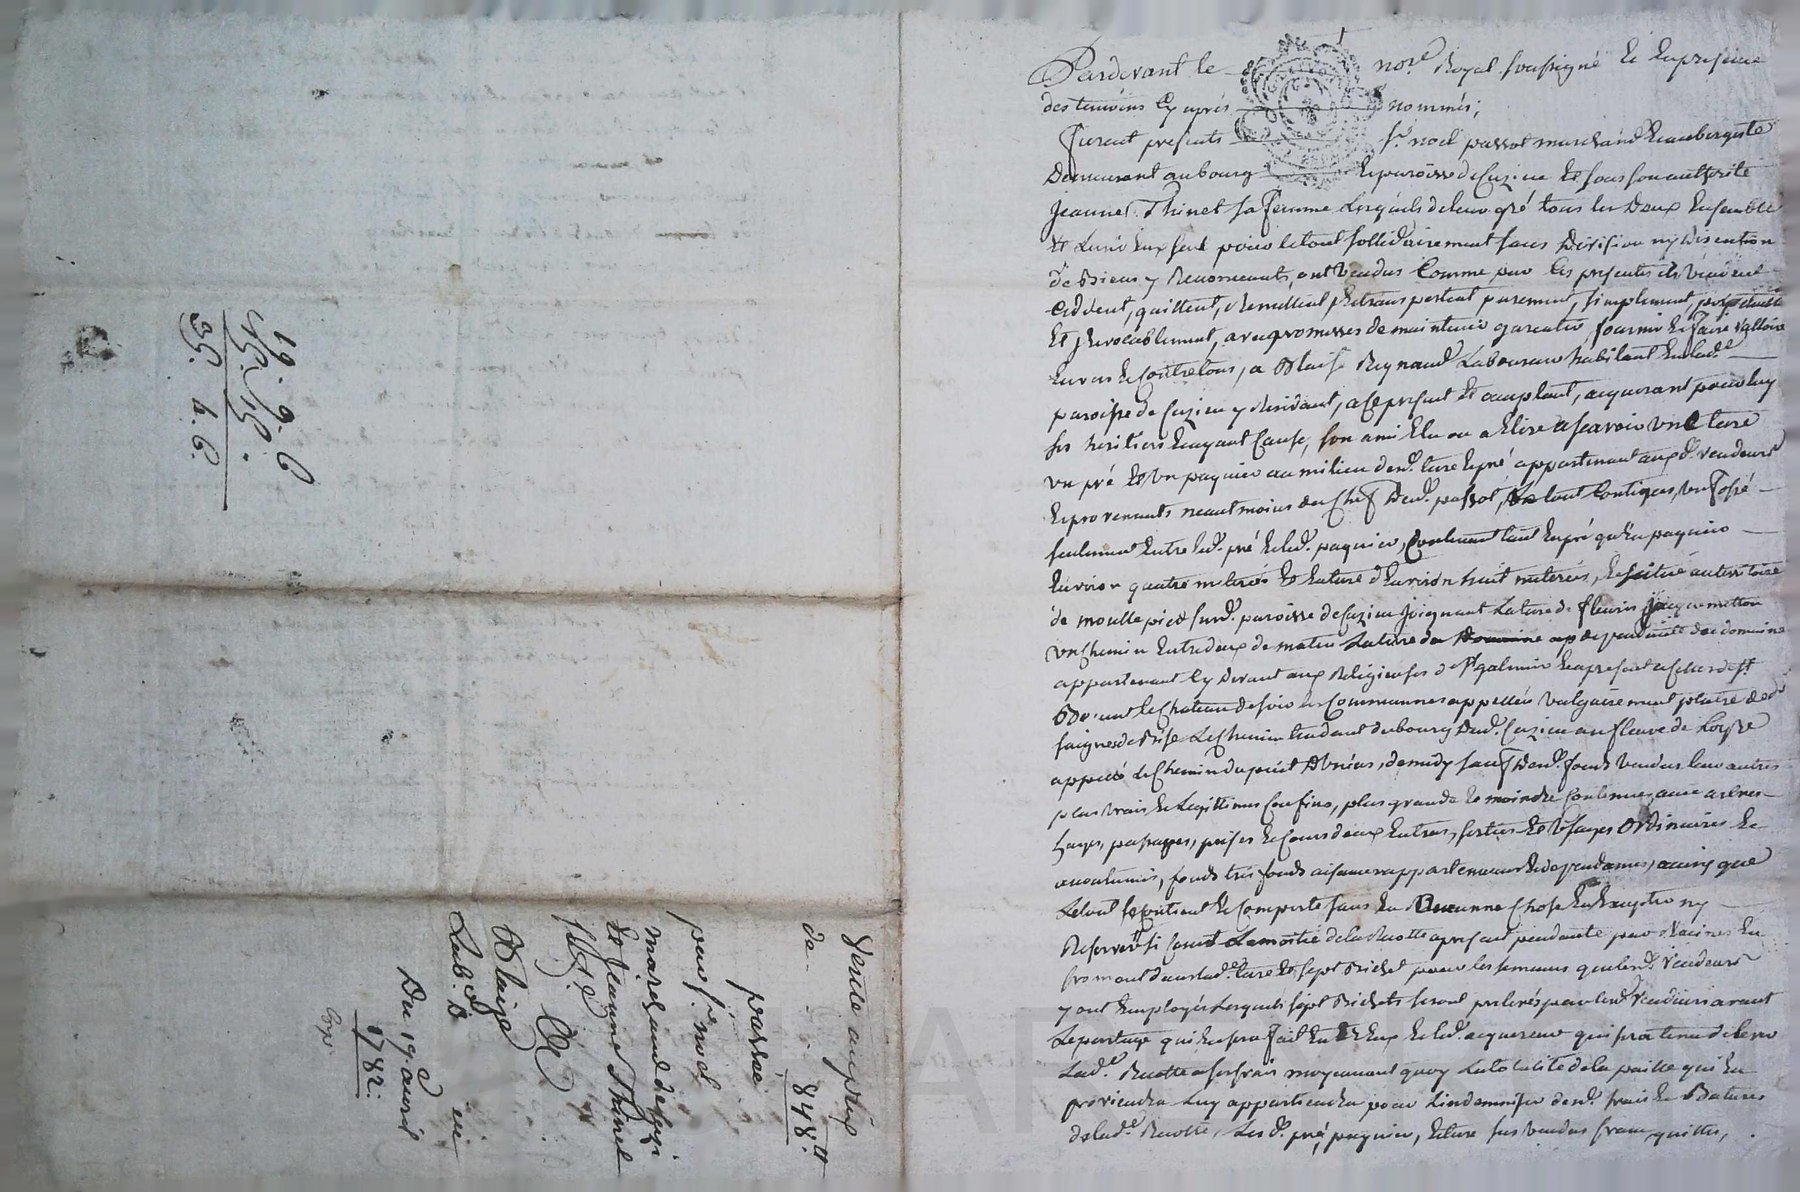 19. 9. 6
15. 15.
35. 4. 6.
Vente au prix
de 848.tt
passée
par sr. noel
marchand
et Jeanne Thinet
Blaize
Lab.r
Du 19 avril
1782.
Pardevant le nore. Royal soussigné et en presence
des temoins cy aprés nommés;
Furent presents sr. noel passot marchand et aubergiste
Demeurant au bourg et paroisse de Cuzieu et sous son authorité
Jeanne Thinet sa femme Lesquels de leur gré tous les deux Ensemble
et L'un d'eux seul pour le tout sollidairement sans Division ny discution
de Biens y Renonceants, ont vendus Comme par les presentes ils vendent
Ceddent, quittent, Remettent et transportent purement, simplement, perpetuelle
Et jrrevocablement, avec promesses de maintenir garentir fournir et faire valloir
Envers et Contre tous, a Blaise Reynaud Laboureur habitant En lad.e
paroisse de Cuzieu y Residant, a ce present et acceptant, acquerant pour luy
ses heritiers Et ayant Cause, son ami Elu ou a Elire a scavoir vne terre
vn pré et vn paquier au milieu desd. terre et pré appartenant auxd. vendeurs
Et provenants neantmoins du Chef dud. passot, le tout Contigus, vn fossé
seulement Entre led. pré et led. paquier, Contenant tant En pré qu'En paquier
Environ quatre meterés et En terre d'Environ huit meterés, et situé au territoire
de moulle pied sur d. paroisse de Cuzieu Joignant La terre de fleuris Jacquemetton
vn Chemin Entredeux de matin La terre dependante du domaine
appartenant cy devant aux Religieuses de St galmier Et a present a
le Chateau de soir les Communnes appellées vulgairement
Le Chemin tendant du bourg dud. Cuzieu au fleuve de Loire
appellé le Chemin du port de midy sauf desd. fonds vendus leur autres
plus vrais et Legittimes Confins, plus grande et moindre Contenue, avec arbres
hayes, passages, prises et Cours d'eaux Entrées, sorties et vsages ordinaires et
accoutumés, fonds tres fonds aisances appartenances et dependances, ainsi que
Le tout se Contient et Comporte sans En Aucunne Chose En Excepter ny
Reserver si Ce n'est La moitié de la Recolte a present pendante par Racines En
froment dans lad. terre et sept Bichet pour les semances que lesd. vendeurs
y ont Employés Lesquels sept Bichets seront prelevés par lesd. vendeurs avant
Le partage qui En sera fait Entre Eux et led. acquereur qui sera tenu de lever
Lad.e Recolte a ses frais moyennant quoy La totalité de la paille qui En
proviendra Luy appartiendra pour L'indemniser desd. frais et Batures
de lad.e Recolte, Les d. pré, paquier, et terre sus vendus francs, quittes,